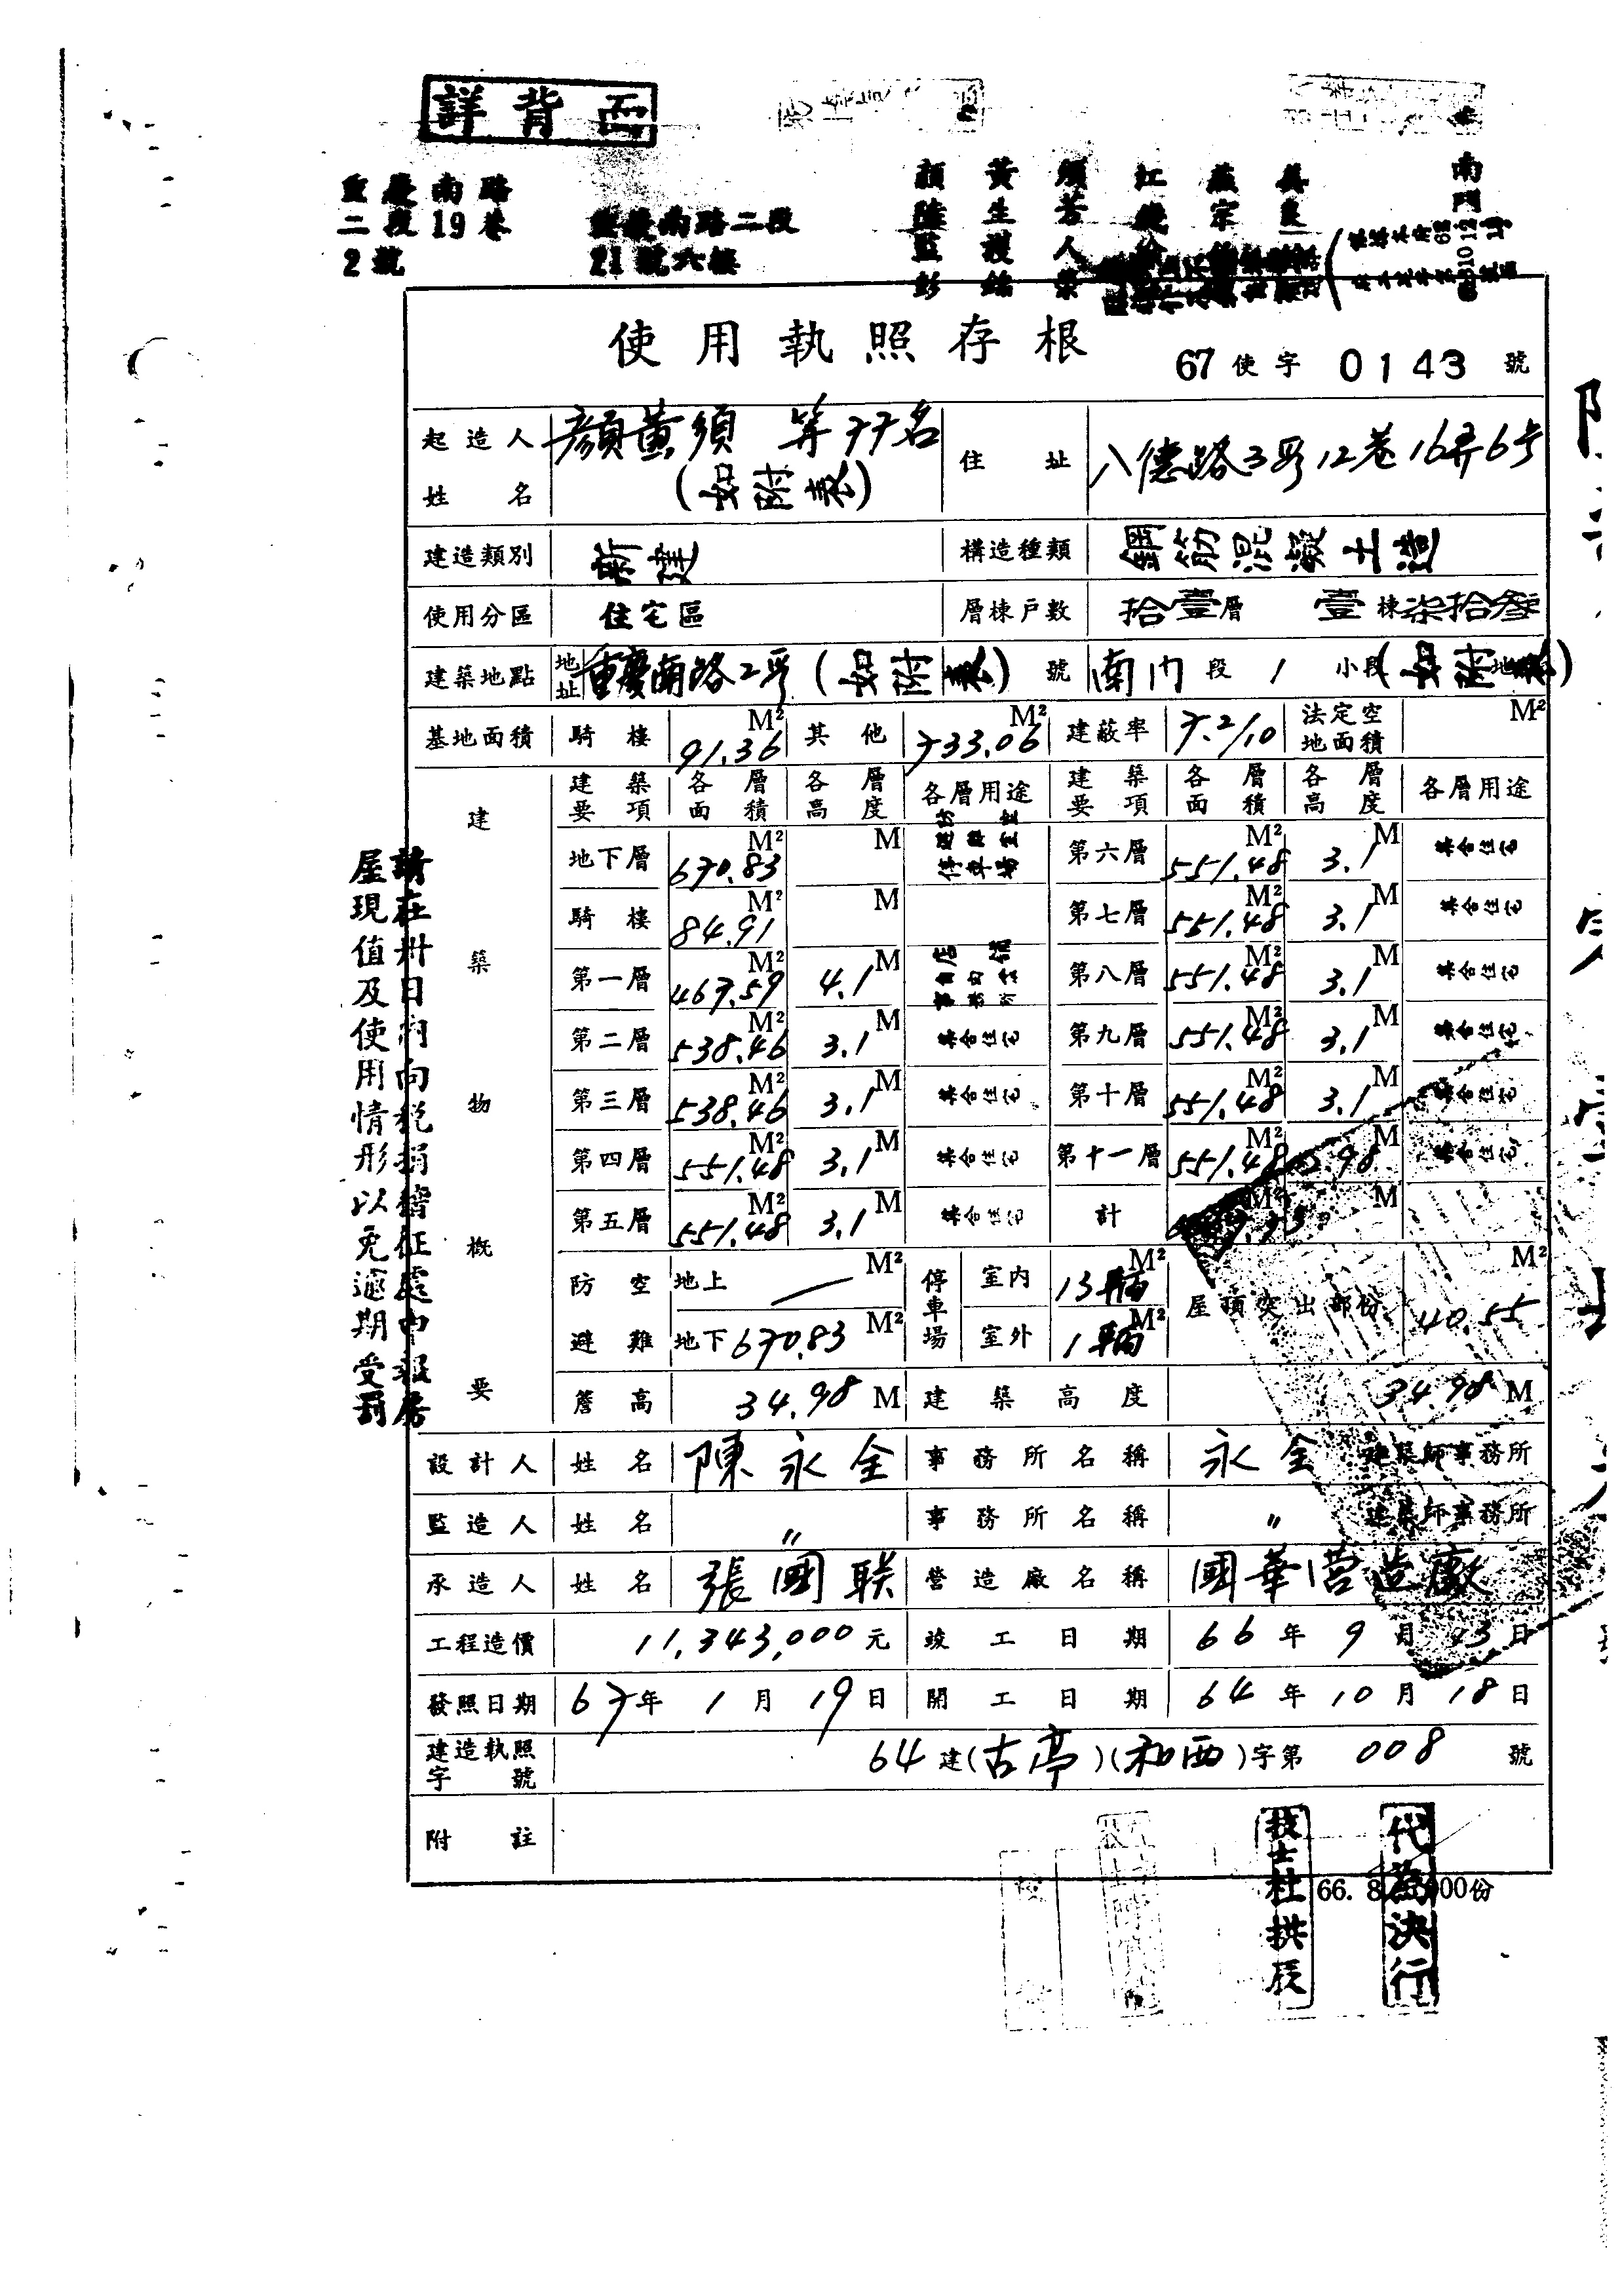 詳背面
重慶南路
二段19巷
2號
重慶南路二段
21號六樓
使用執照存根
67使字 0143 號
起造人姓名 顏黃須 等77名
(如附表)
住址 八德路3段12巷16弄6号
建造類別 新建 構造種類 鋼筋混凝土造
使用分區 住宅區 層棟戶數 拾壹層 壹棟柒拾叁
建築地點 地址 重慶南路2段 號 南門段 1 小段
基地面積 騎樓 91.36 M² 其他 733.06 M² 建蔽率 7.2/10 法定空地面積 M²
建築物概要
建築要項 各層面積 各層高度 各層用途 建築要項 各層面積 各層高度 各層用途
地下層 670.83 M² M 防空避難室停車場 第六層 551.48 M² 3.1 M 集合住宅
騎樓 84.91 M² M 第七層 551.48 M² 3.1 M 集合住宅
第一層 467.59 M² 4.1 M 店舖 第八層 551.48 M² 3.1 M 集合住宅
第二層 538.46 M² 3.1 M 集合住宅 第九層 551.48 M² 3.1 M 集合住宅
第三層 538.46 M² 3.1 M 集合住宅 第十層 551.48 M² 3.1 M 集合住宅
第四層 551.48 M² 3.1 M 集合住宅 第十一層 551.48 M² M 集合住宅
第五層 551.48 M² 3.1 M 集合住宅 計 M² M
防空避難 地上 — M² 停車場 室內 13輛 M² 屋頂突出部份 40.55 M²
地下 670.83 M² 室外 1輛 M²
簷高 34.98 M 建築高度 34.98 M
設計人 姓名 陳永全 事務所名稱 永全 建築師事務所
監造人 姓名 〃 事務所名稱 〃 建築師事務所
承造人 姓名 張國联 營造廠名稱 國華营造廠
工程造價 11,343,000元 竣工日期 66年9月13日
發照日期 67年1月19日 開工日期 64年10月18日
建造執照字號 64建(古亭)(和西)字第 008 號
附註
請在卅日內向稅捐稽征處申報房
屋現值及使用情形以免逾期受罰
技士杜拱辰
代為決行